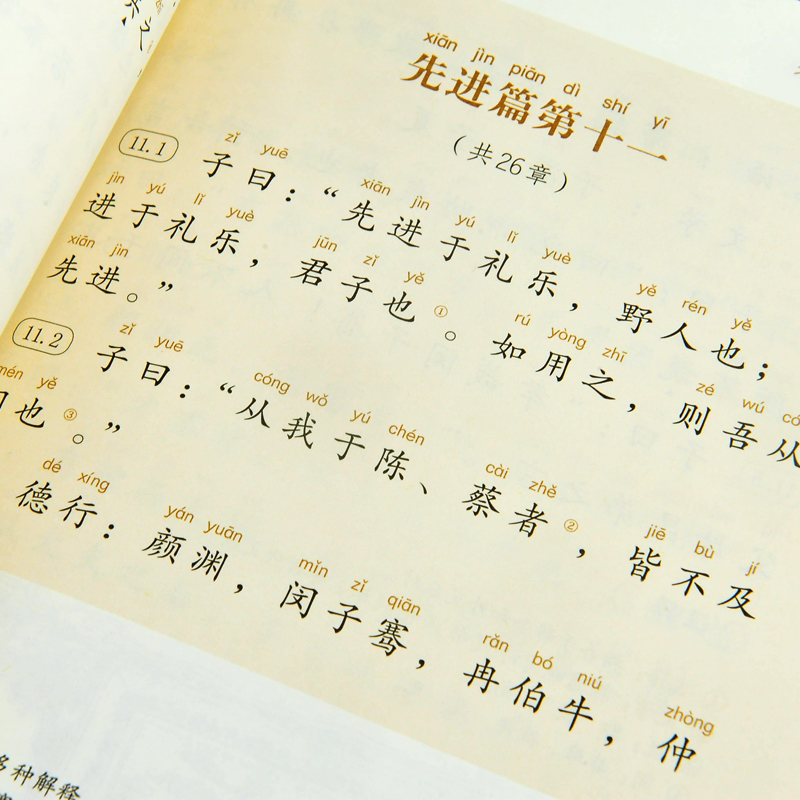 xiān jìn piān dì shí yī
先进篇第十一
（共26章）
zǐ yuē xiān jìn yú lǐ yuè yě rén yě
11.1 子曰：“先进于礼乐，野人也；
jìn yú lǐ yuè jūn zǐ yě rú yòng zhī zé wú
进于礼乐，君子也①。如用之，则吾从
xiān jìn
先进。”
zǐ yuē cóng wǒ yú chén cài zhě jiē bù jí
11.2 子曰：“从我于陈、蔡者②，皆不及
mén yě
也③。”
dé xíng yán yuān mǐn zǐ qiān rǎn bó niú zhòng
德行：颜渊，闵子骞，冉伯牛，仲
种解释